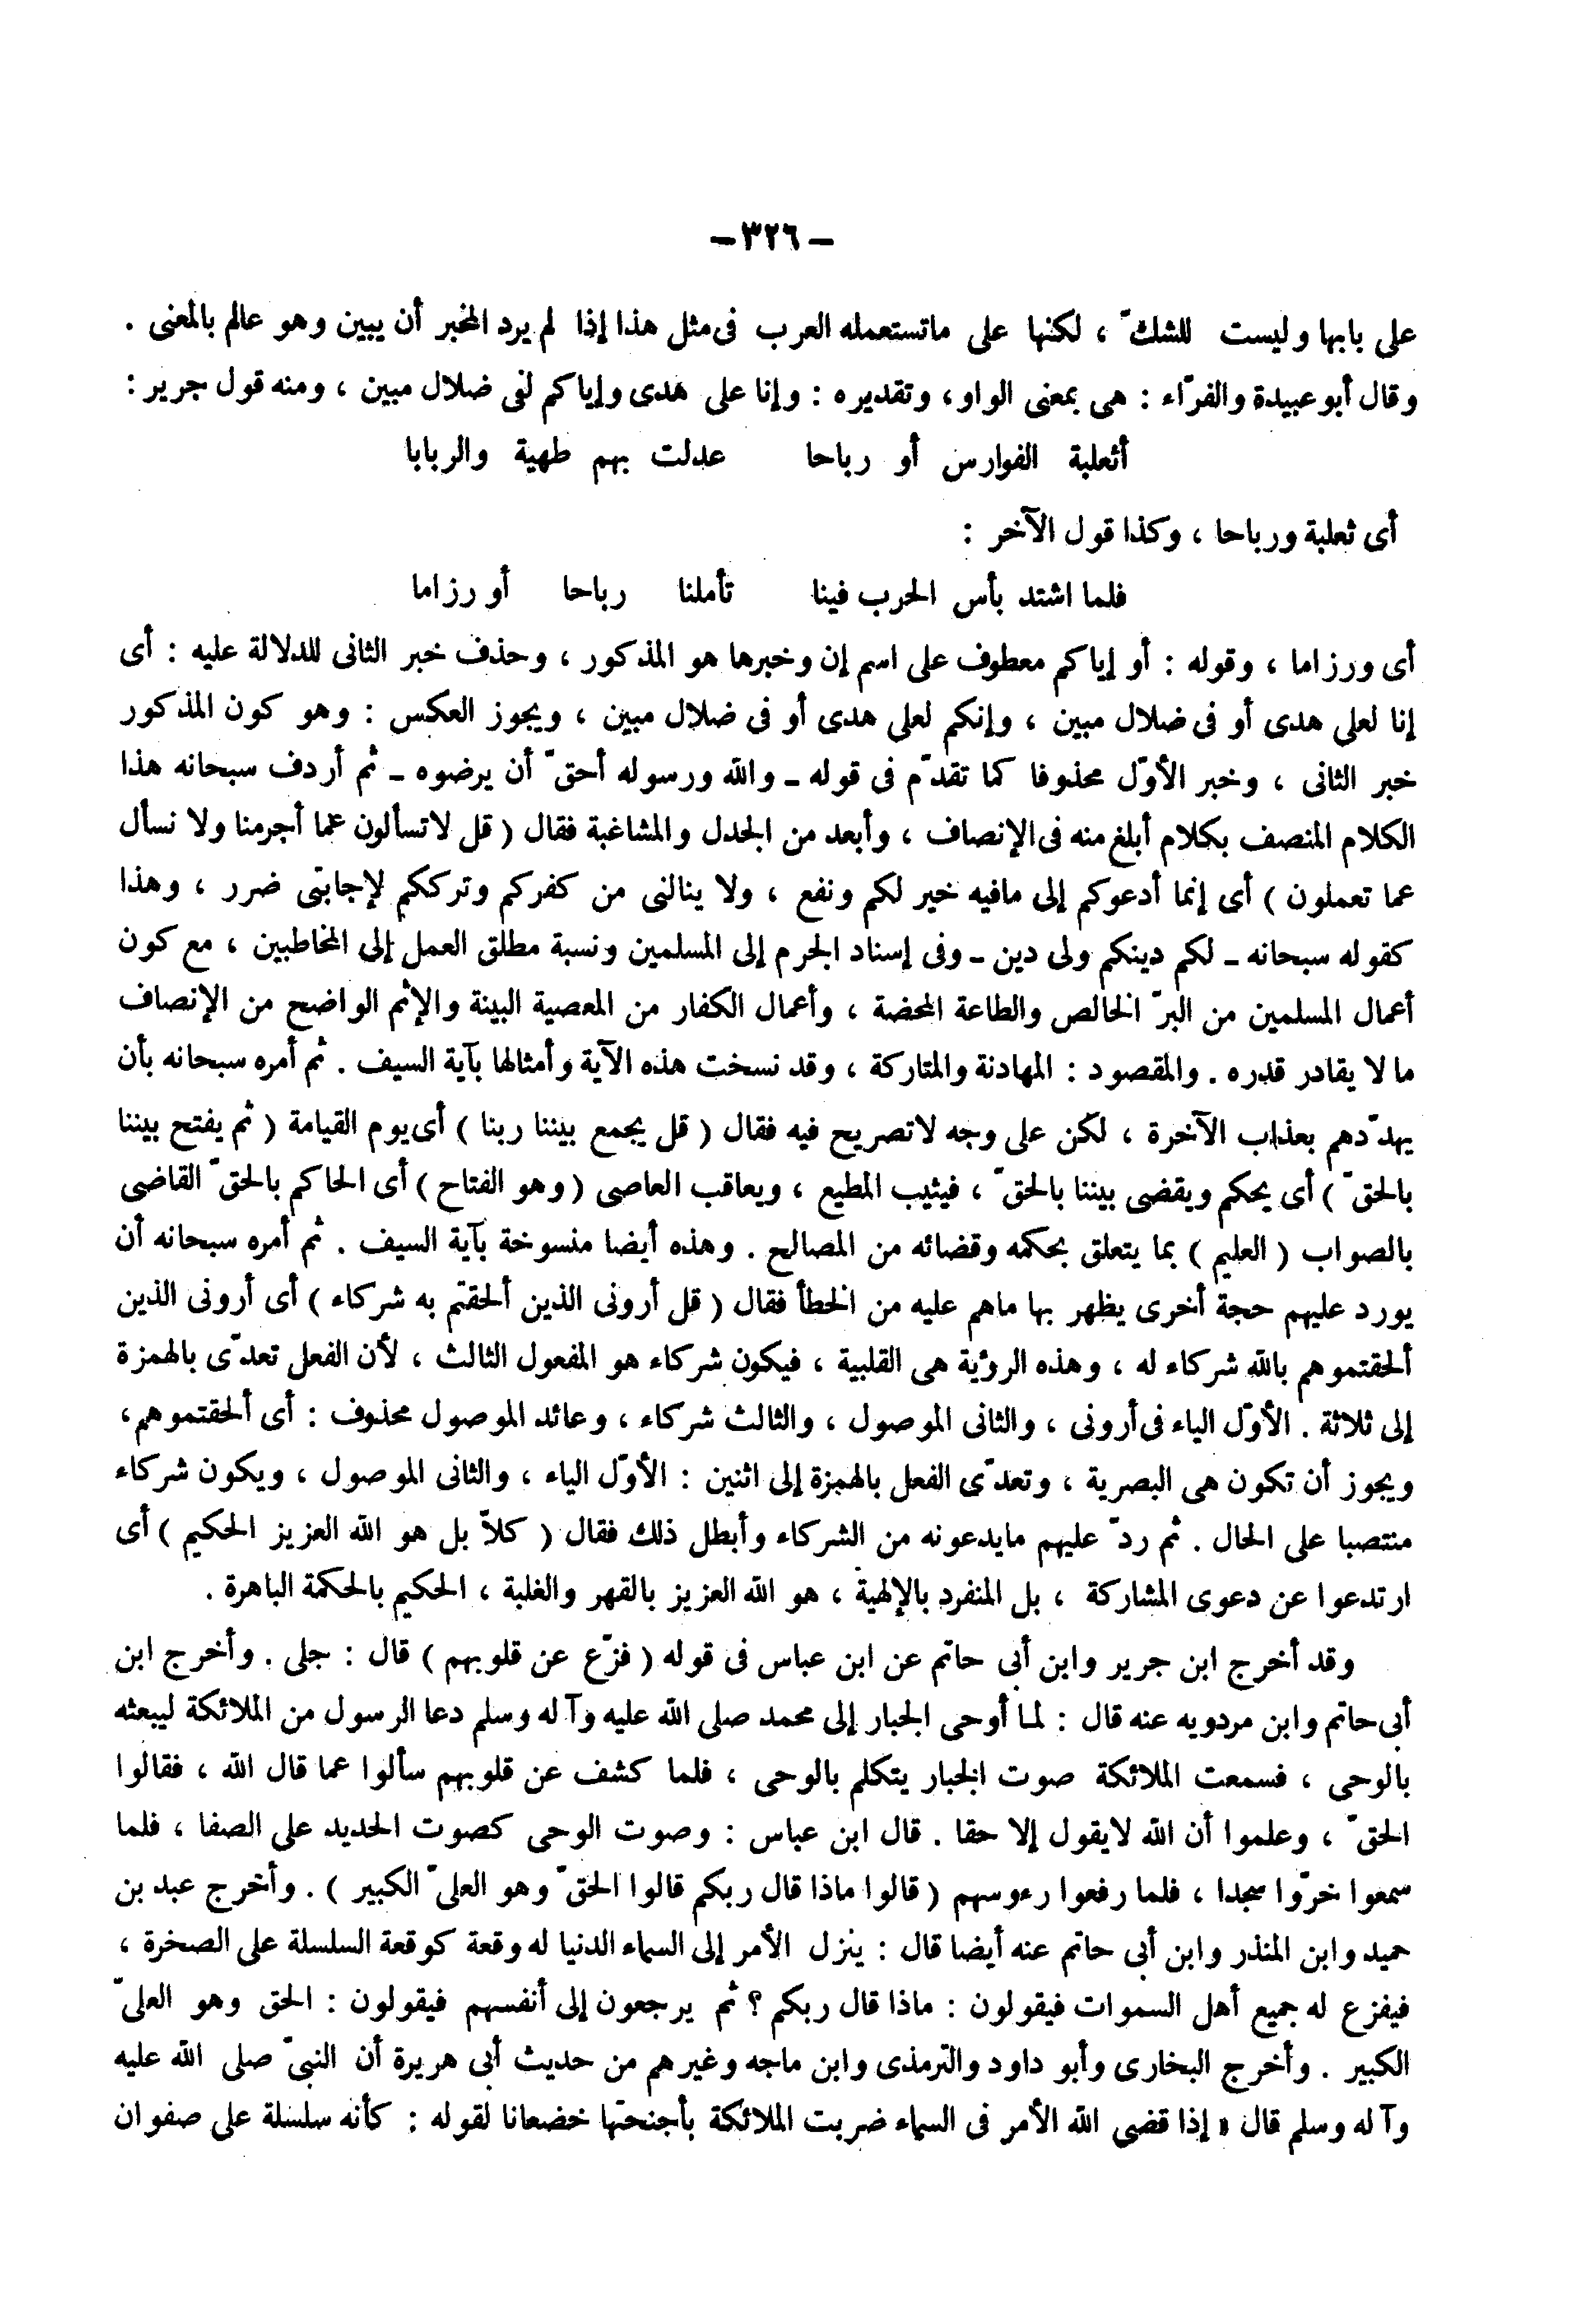 – ٣٢٦ –
على بابها وليست للشكّ ، لكنها على ماتستعمله العرب فى مثل هذا إذا لم يرد المخبر أن يبين وهو عالم بالمعنى .
وقال أبو عبيدة والفرّاء : هى بمعنى الواو، وتقديره : وإنا على هدى وإياكم لفى ضلال مبين ، ومنه قول جرير :
أثعلبة الفوارس أو رباحا عدلت بهم طهية والربابا
أى ثعلبة ورباحا ، وكذا قول الآخر :
فلما اشتد بأس الحرب فينا تأملنا رباحا أو رزاما
أى ورزاما ، وقوله : أو إياكم معطوف على اسم إن وخبرها هو المذكور ، وحذف خبر الثانى للدلالة عليه : أى
إنا لعلى هدى أو فى ضلال مبين ، وإنكم لعلى هدى أو فى ضلال مبين ، ويجوز العكس : وهو كون المذكور
خبر الثانى ، وخبر الأوّل محذوفا كما تقدّم فى قوله ـ والله ورسوله أحقّ أن يرضوه ـ ثم أردف سبحانه هذا
الكلام المنصف بكلام أبلغ منه فى الإنصاف ، وأبعد من الجدل والمشاغبة فقال ( قل لاتسألون عما أجرمنا ولا نسأل
عما تعملون ) أى إنما أدعوكم إلى مافيه خير لكم ونفع ، ولا ينالنى من كفركم وترككم لإجابتى ضرر ، وهذا
كقوله سبحانه ـ لكم دينكم ولى دين ـ وفى إسناد الجرم إلى المسلمين ونسبة مطلق العمل إلى المخاطبين ، مع كون
أعمال المسلمين من البرّ الخالص والطاعة المحضة ، وأعمال الكفار من المعصية البينة والإثم الواضح من الإنصاف
ما لا يقادر قدره . والمقصود : المهادنة والمتاركة ، وقد نسخت هذه الآية وأمثالها بآية السيف . ثم أمره سبحانه بأن
يهدّدهم بعذاب الآخرة ، لكن على وجه لاتصريح فيه فقال ( قل يجمع بيننا ربنا ) أى يوم القيامة ( ثم يفتح بيننا
بالحقّ ) أى يحكم ويقضى بيننا بالحقّ ، فيثيب المطيع ، ويعاقب العاصى ( وهو الفتاح ) أى الحاكم بالحقّ القاضى
بالصواب ( العليم ) بما يتعلق بحكمه وقضائه من المصالح . وهذه أيضا منسوخة بآية السيف . ثم أمره سبحانه أن
يورد عليهم حجة أخرى يظهر بها ماهم عليه من الخطأ فقال ( قل أرونى الذين ألحقتم به شركاء ) أى أرونى الذين
ألحقتموهم بالله شركاء له ، وهذه الرؤية هى القلبية ، فيكون شركاء هو المفعول الثالث ، لأن الفعل تعدّى بالهمزة
إلى ثلاثة . الأوّل الياء فى أرونى ، والثانى الموصول ، والثالث شركاء ، وعائد الموصول محذوف : أى ألحقتموهم،
ويجوز أن تكون هى البصرية ، وتعدّى الفعل بالهمزة إلى اثنين : الأوّل الياء ، والثانى الموصول ، ويكون شركاء
منتصبا على الحال . ثم ردّ عليهم مايدعونه من الشركاء وأبطل ذلك فقال ( كلاّ بل هو الله العزيز الحكيم ) أى
ارتدعوا عن دعوى المشاركة ، بل المنفرد بالإلهية ، هو الله العزيز بالقهر والغلبة ، الحكيم بالحكمة الباهرة .
وقد أخرج ابن جرير وابن أبى حاتم عن ابن عباس فى قوله ( فزّع عن قلوبهم ) قال : جلى . وأخرج ابن
أبى حاتم وابن مردويه عنه قال : لما أوحى الجبار إلى محمد صلى الله عليه وآله وسلم دعا الرسول من الملائكة ليبعثه
بالوحى ، فسمعت الملائكة صوت الجبار يتكلم بالوحى ، فلما كشف عن قلوبهم سألوا عما قال الله ، فقالوا
الحقّ ، وعلموا أن الله لايقول إلا حقا . قال ابن عباس : وصوت الوحى كصوت الحديد على الصفا ، فلما
سمعوا خرّوا سجدا ، فلما رفعوا رءوسهم ( قالوا ماذا قال ربكم قالوا الحقّ وهو العلىّ الكبير ) . وأخرج عبد بن
حميد وابن المنذر وابن أبى حاتم عنه أيضا قال : ينزل الأمر إلى السماء الدنيا له وقعة كوقعة السلسلة على الصخرة ،
فيفزع له جميع أهل السموات فيقولون : ماذا قال ربكم ؟ ثم يرجعون إلى أنفسهم فيقولون : الحق وهو العلىّ
الكبير . وأخرج البخارى وأبو داود والترمذى وابن ماجه وغيرهم من حديث أبى هريرة أن النبىّ صلى الله عليه
وآله وسلم قال « إذا قضى الله الأمر فى السماء ضربت الملائكة بأجنحتها خضعانا لقوله : كأنه سلسلة على صفوان